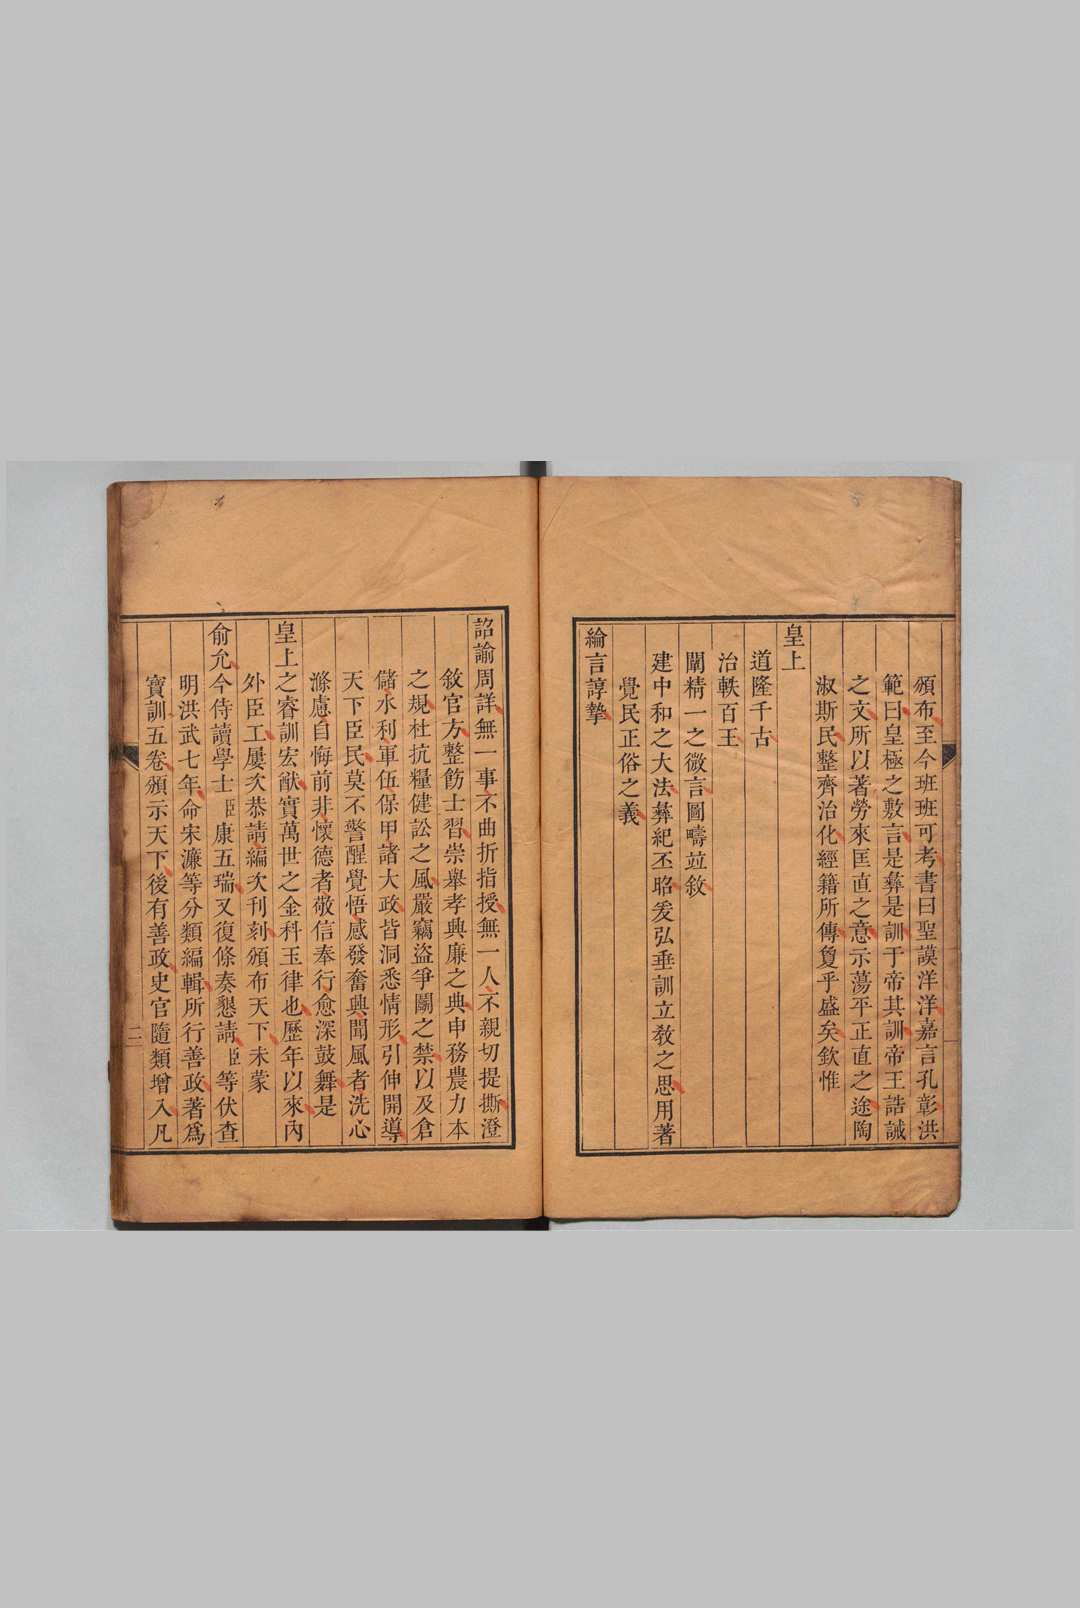 頒布至今班班可考書曰聖謨洋洋嘉言孔彰洪
範曰皇極之敷言是彝是訓于帝其訓帝王誥誡
之文所以著勞來匡直之意示蕩平正直之途陶
淑斯民整齊治化經籍所傳敻乎盛矣欽惟
皇上
道隆千古
治軼百王
闡精一之微言圖疇竝敘
建中和之大法彝紀丕昭爰弘垂訓立教之思用著
覺民正俗之義
綸言諄摯
詔諭周詳無一事不曲折指授無一人不親切提撕澄
敘官方整飭士習崇舉孝興廉之典申務農力本
之規杜抗糧健訟之風嚴竊盜爭鬭之禁以及倉
儲水利軍伍保甲諸大政皆洞悉情形引伸開導
天下臣民莫不警醒覺悟感發奮興聞風者洗心
滌慮自悔前非懷德者敬信奉行愈深鼓舞是
皇上之睿訓宏猷實萬世之金科玉律也歷年以來內
外臣工屢次恭請編次刊刻頒布天下未蒙
俞允今侍讀學士臣康五瑞又復條奏懇請臣等伏查
明洪武七年命宋濂等分類編輯所行善政著爲
寶訓五卷頒示天下後有善政史官隨類增入凡
二